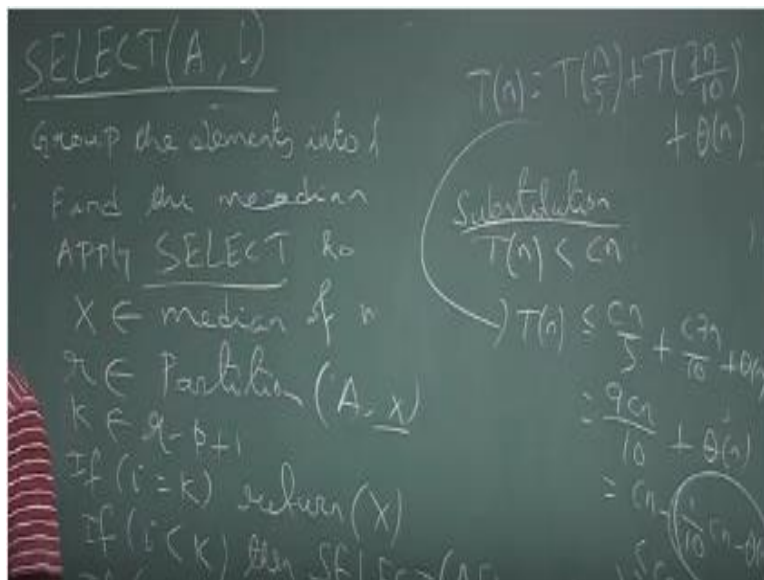 SELECT(A, i)
Group the elements into
Find the median
Apply SELECT to
X ← median of
r ← Partition (A, x)
k ← r-p+1
If (i = k) return (X)
If (i < k) then SELECT(A
T(n) = T(n/5) + T(7n/10)
+ θ(n)
Substitution
T(n) < cn
T(n) ≤ cn/5 + c7n/10 + θ(n)
= 9cn/10 + θ(n)
= cn - (1/10 cn - θ(n)